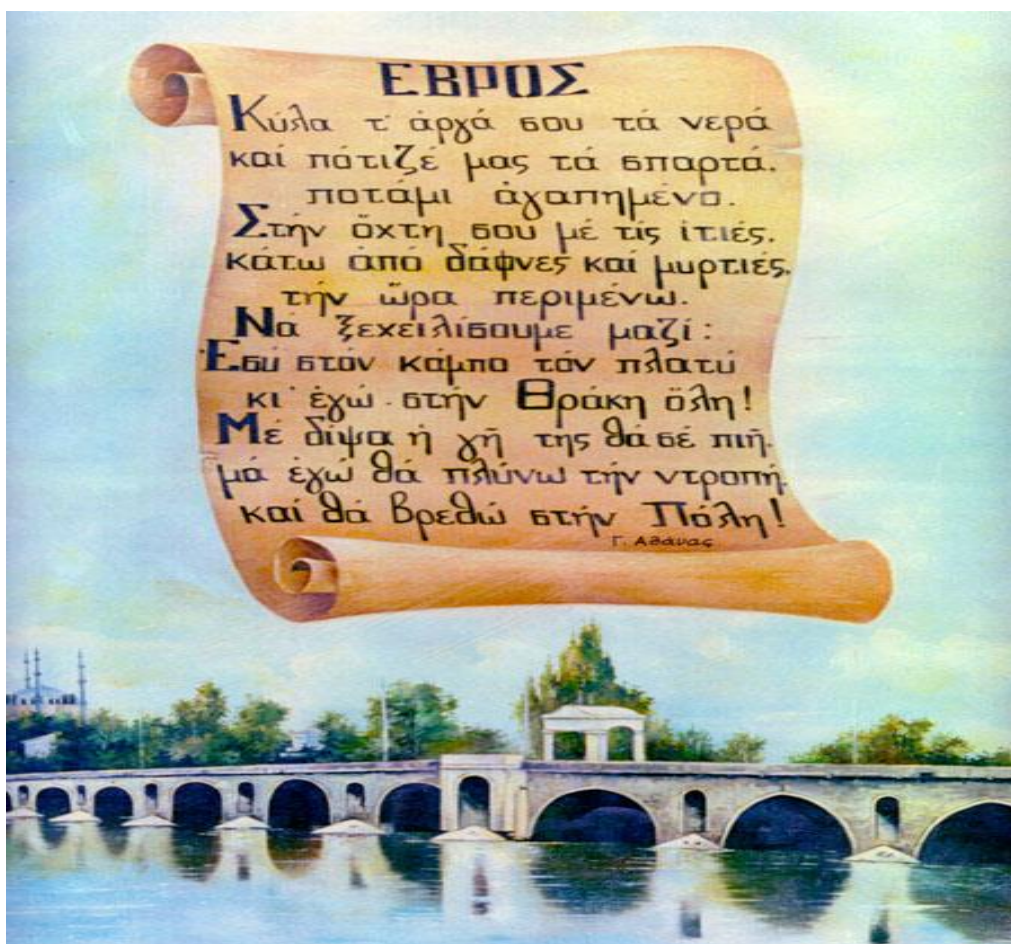 ΕΒΡΟΣ
Κύλα τ' ἀργά σου τά νερά
καί πότιζέ μας τά σπαρτά.
ποτάμι ἀγαπημένο.
Στήν ὄχτη σου μέ τίς ἰτιές.
κάτω ἀπό δάφνες καί μυρτιές.
τήν ὥρα περιμένω.
Νά ξεχειλίσουμε μαζί:
Ἐσύ στόν κάμπο τόν πλατύ
κι' ἐγώ στήν Θράκη ὅλη!
Μέ δίψα ἡ γῆ της θά σέ πιῆ.
μά ἐγώ θά πλύνω τήν ντροπή.
καί θά βρεθῶ στήν Πόλη!
Γ. Αθάνας